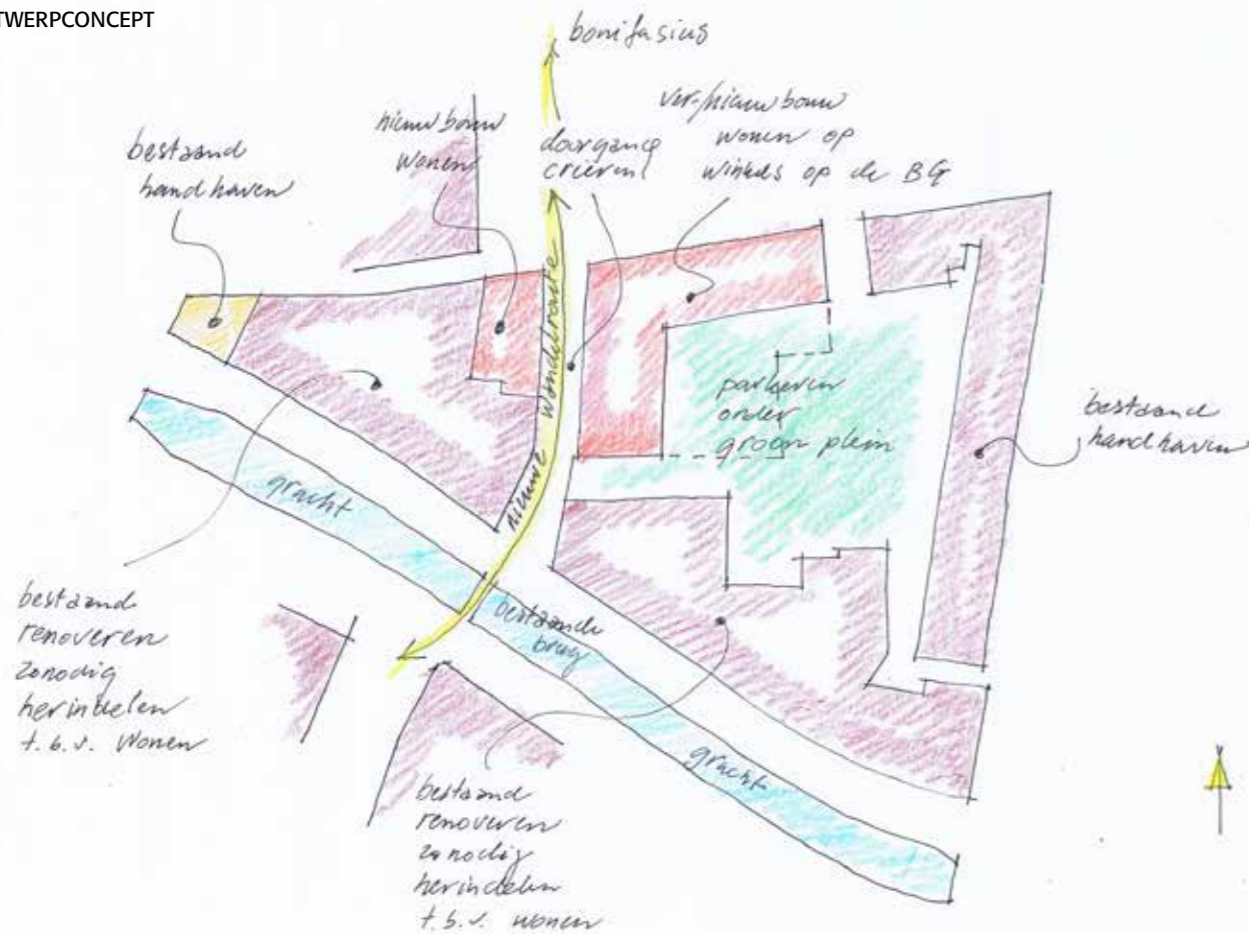 TWERPCONCEPT
bonifasius
bestaand
handhaven
nieuwbouw
wonen
doorgang
crieren
ver-/nieuwbouw
wonen op
winkels op de BG
nieuwe wandelroute
parkeren
onder
groen plein
bestaand
handhaven
gracht
bestaande
brug
gracht
bestaand
renoveren
zonodig
herindelen
t.b.v. wonen
bestaand
renoveren
zonodig
herindelen
t.b.v. wonen